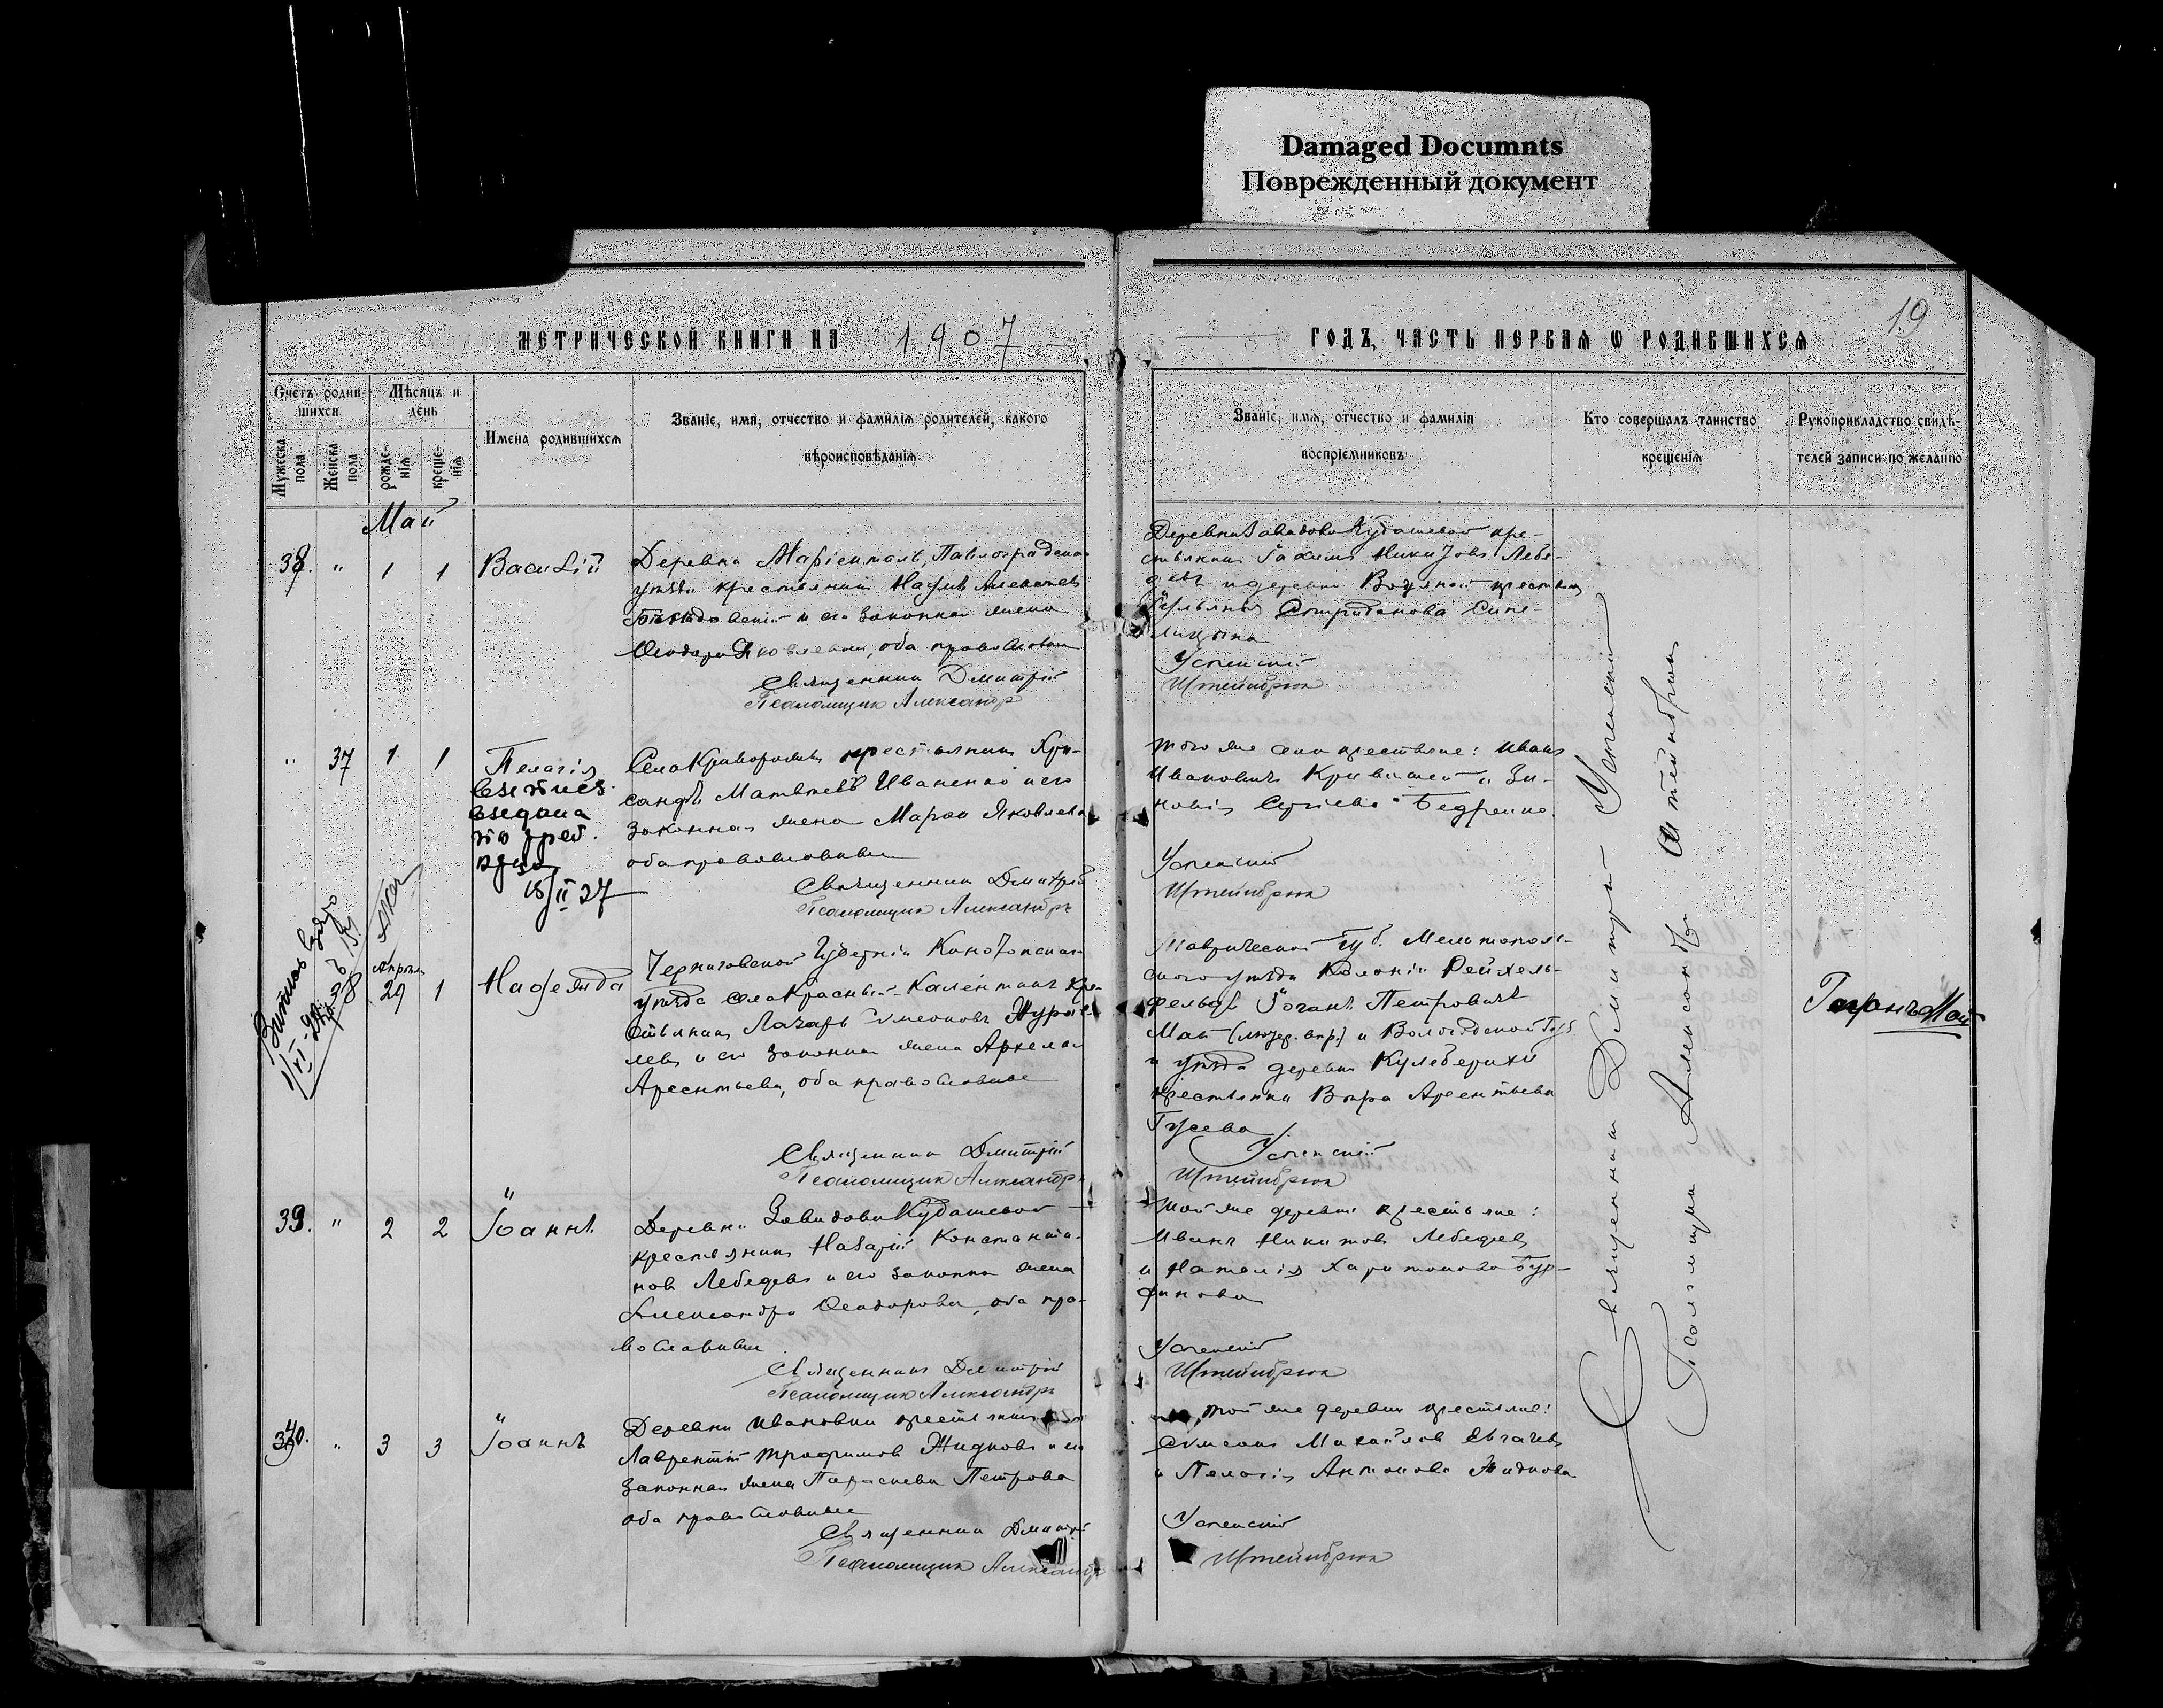 Damaged Documnts
Поврежденный документ
19
МЕТРИЧЕСКОЙ КНИГИ НА 1907
ГОДЪ, ЧАСТЬ ПЕРВАЯ Ѡ РОДИВШИХСЯ
Счетъ родив-
шихся
Мужеска
пола
Женска
пола
Мѣсяцъ и
день
рожде-
нія
креще-
нія
Имена родившихся
Званіе, имя, отчество и фамилія родителей, какого
вѣроисповѣданія
Званіе, имя, отчество и фамилія
воспріемниковъ
Кто совершалъ таинство
крещенія
Рукоприкладство свидѣ-
телей записи по желанію
Май
38. " 1 1 Василій
Деревни Маріенталь, Павлоградскаго
уѣзда крестьянинъ Наумъ Алексѣевъ
и его законная жена
Ѳеодора Яковлевна, оба православны
Священникъ Дмитрій
Псаломщикъ Александръ
Деревни Завидово Кудашевой кре-
стьянинъ Никитовъ Лебе-
девъ и деревни Водяной крестьянка
Ульянія Спиридонова Сине-
лицына
Успенскій
Штейнбрюк
" 37 1 1 Пелагія
18/II 27
Села Криворожья крестьянинъ Хри-
санфъ Матвѣевъ Иваненко и его
законная жена Марфа Яковлева
оба православные
Священникъ Дмитрій
Псаломщикъ Александръ
того же села крестьяне: Иванъ
Ивановичъ и Зи-
новія Сергіева
Успенскій
Штейнбрюк
Апрѣля
29 1
Черниговской Губерніи Конотопскаго
уѣзда села Красный-Калентаиъ кре-
стьянинъ Лазарь Сумеоновъ Журав-
левъ и его законная жена
Арсентьева, оба православные
Священникъ Дмитрій
Псаломщикъ Александръ
Таврической Губ. Мелитополь-
скаго уѣзда Колоніи Рейхель-
фельдъ Іоганъ Петровичъ
Мат (лютер. вѣр.) и Вологодской Губ.
и уѣзда деревни Кулеберихи
крестьянка Вѣра Арсентьева
Гусева
Успенскій
Штейнбрюк
39. " 2 2 Іоаннъ
Деревни Завидово Кудашевой
крестьянинъ Назарій Константи-
новъ Лебедевъ и его законная жена
Александра Ѳеодорова, оба пра-
вославные
Священникъ Дмитрій
Псаломщикъ Александръ
той же деревни крестьяне:
Иванъ Никитовъ Лебедевъ
и Наталія Харитонова Бур-
Успенскій
Штейнбрюк
40. " 3 3 Іоаннъ
Деревни Ивановки крестьянинъ
Лаврентій Трофимовъ Жидковъ и его
законная жена Параскева Петрова
оба православные
Священникъ Дмитрій
Псаломщикъ Александръ
той же деревни крестьяне:
Сумеонъ Михайловъ
и Пелагія Антонова Жидкова
Успенскій
Штейнбрюк
Священникъ Димитрій Успенскій
Псаломщикъ Александръ Штейнбрюк